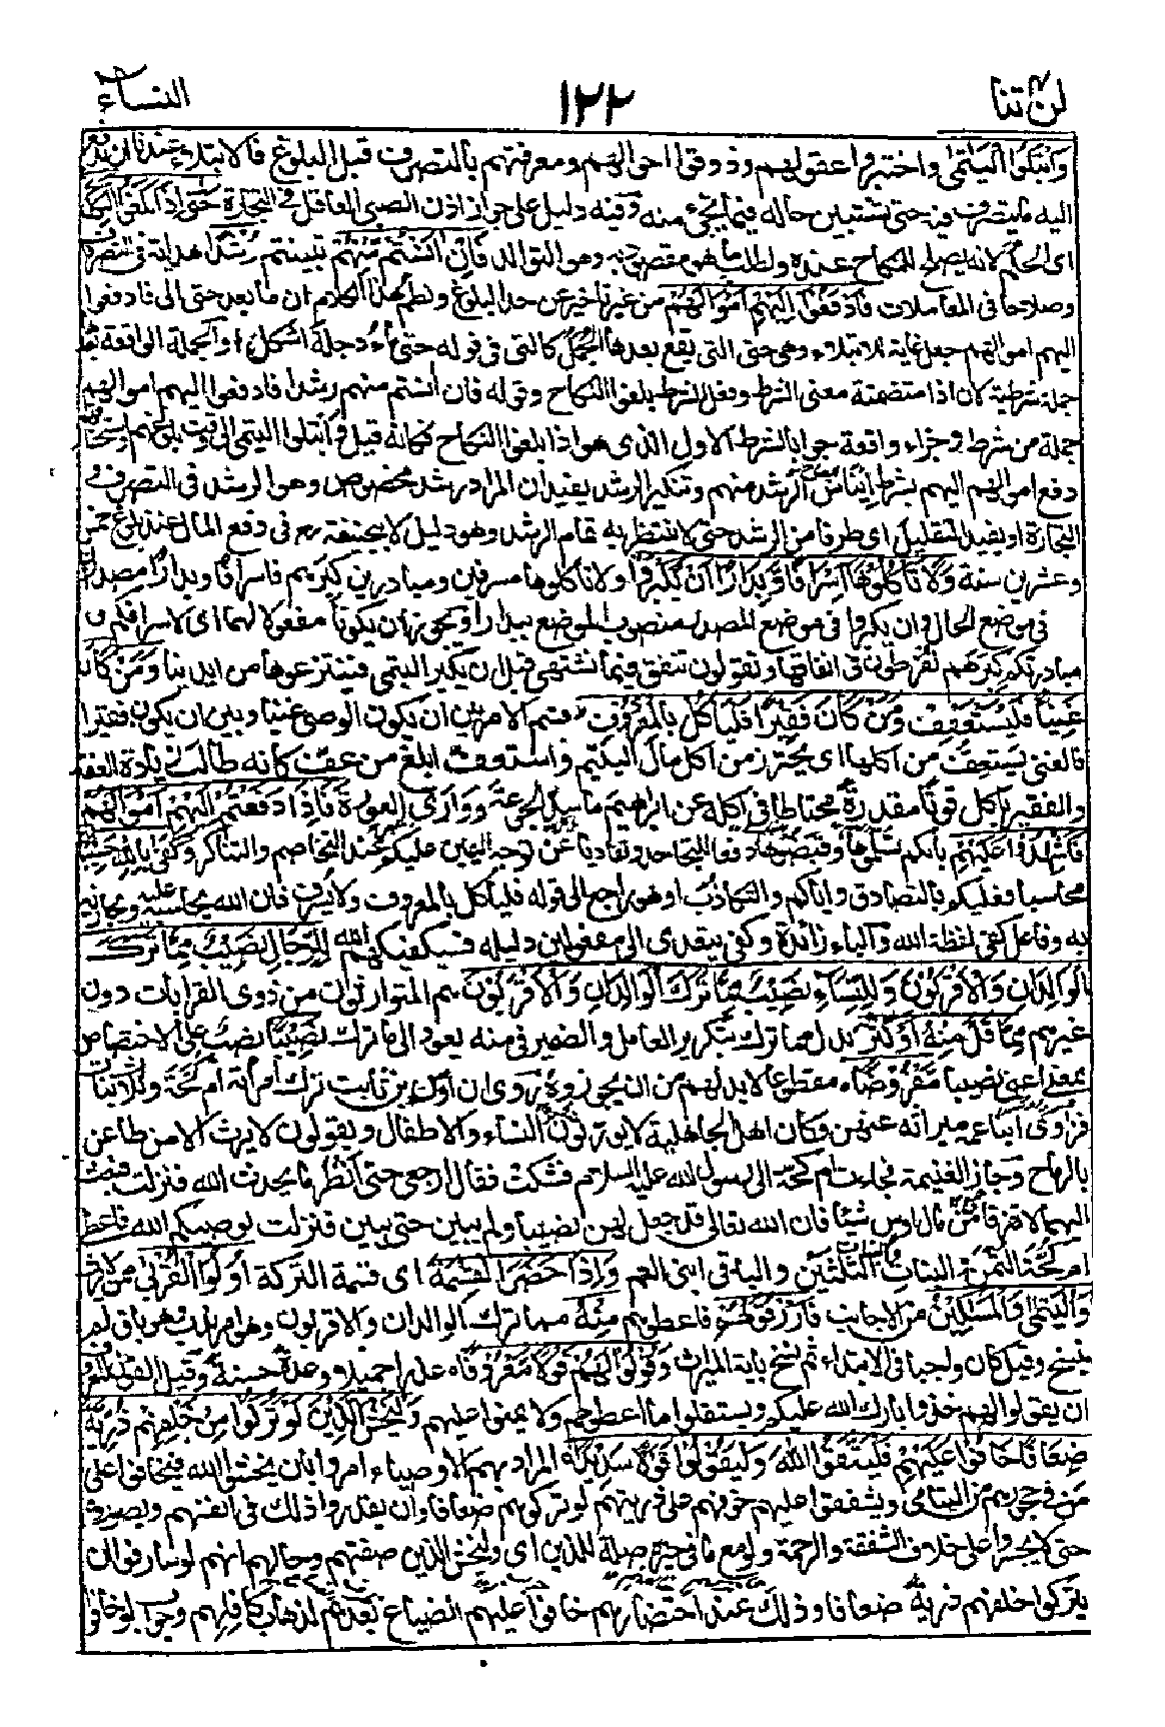 لن تنا ١٢٢ النساء
وَابْتَلُوا الْيَتٰمٰى واختبروا عقولهم وذوقوا احوالهم ومعرفتهم بالتصرف قبل البلوغ فالابتلاء عندنا ان يدفع
اليه ما يتصرف فيه حتى تتبين حاله فيما يجئ منه وفيه دليل على جواز اذن الصبي العاقل في التجارة حَتّٰى اِذَا بَلَغُوا النِّكَاحَ
اى الحلم لانه يصلح للنكاح عنده ولطلب ما هو مقصود به وهو التوالد فَاِنْ اٰنَسْتُمْ مِنْهُمْ تبينتم رُشْدًا هداية في التصرف
وصلاحا في المعاملات فَادْفَعُوْا اِلَيْهِمْ اَمْوَالَهُمْ من غير تاخير عن حد البلوغ ونظم هذا الكلام ان ما بعد حتى الى فادفعوا
اليهم اموالهم جعل غاية للابتلاء وهي حتى التي يقع بعدها الجمل كالتي في قوله حتى ماء دجلة اشكل والجملة الواقعة بعدها
جملة شرطية لان اذا متضمنة معنى الشرط وفعل الشرط بلغوا النكاح وقوله فان آنستم منهم رشدا فادفعوا اليهم اموالهم
جملة من شرط وجزاء واقعة جوابا للشرط الاول الذي هو اذا بلغوا النكاح فكانه قيل وابتلوا اليتمى الى وقت بلوغهم واستحقاقهم
دفع اموالهم اليهم بشرط ايناس الرشد منهم وتنكير الرشد يفيد ان المراد رشد مخصوص وهو الرشد في التصرف و
التجارة او يفيد التقليل اى طرفا من الرشد حتى لا ينتظر به تمام الرشد وهو دليل لابي حنيفة رح في دفع المال عند بلوغ خمس
وعشرين سنة وَلَا تَاْكُلُوْهَا اِسْرَافًا وَّبِدَارًا اَنْ يَّكْبَرُوْا ولا تاكلوها مسرفين ومبادرين كبرهم فاسرافا وبدارا مصدران
في موضع الحال وان يكبروا في موضع المصدر منصوب الموضع ببدارا ويجوز ان يكونا مفعولا لهما اى لاسرافكم و
مبادرتكم كبرهم تفرطون في انفاقها وتقولون ننفق فيما نشتهي قبل ان يكبر اليتمى فينتزعوها من ايدينا وَمَنْ كَانَ
غَنِيًّا فَلْيَسْتَعْفِفْ وَمَنْ كَانَ فَقِيْرًا فَلْيَاْكُلْ بِالْمَعْرُوْفِ قسم الامر بين ان يكون الوصى غنيا وبين ان يكون فقيرا
فالغنى يستعف من اكلها اى يحترز من اكل مال اليتيم واستعف ابلغ من عف كانه طالب زيادة العفة
والفقير ياكل قوتا مقدرا محتاطا في اكله عن ابراهيم ما سد الجوعة ووارى العورة فَاِذَا دَفَعْتُمْ اِلَيْهِمْ اَمْوَالَهُمْ
فَاَشْهِدُوْا عَلَيْهِمْ بانهم تسلموها وقبضوها دفعا للتجاحد وتفاديا عن توجه اليمين عليكم عند التخاصم والتناكر وَكَفٰى بِاللّٰهِ حَسِيْبًا
محاسبا فعليكم بالتصادق واياكم والتكاذب او هو راجع الى قوله فلياكل بالمعروف ولا يسرف فان الله يحاسبه عليه ويجازيه
به وفاعل كفى لفظة الله والباء زائدة وكفى يتعدى الى مفعولين دليله فسيكفيكهم الله لِلرِّجَالِ نَصِيْبٌ مِّمَّا تَرَكَ
الْوَالِدَانِ وَالْاَقْرَبُوْنَ وَلِلنِّسَاءِ نَصِيْبٌ مِّمَّا تَرَكَ الْوَالِدَانِ وَالْاَقْرَبُوْنَ هم المتوارثون من ذوى القرابات دون
غيرهم مِمَّا قَلَّ مِنْهُ اَوْ كَثُرَ بدل مما ترك بتكرير العامل والضمير في منه يعود الى ما ترك نَصِيْبًا نصب على الاختصاص
بمعنى اعنى نصيبا مَّفْرُوْضًا مقطوعا لا بد لهم من ان يحوزوه روى ان اوس بن ثابت ترك امرأته ام كحة وثلاث بنات
فزوى ابنا عمه ميراثه عنهن وكان اهل الجاهلية لا يورثون النساء والاطفال ويقولون لا يرث الا من طاعن
بالرماح وحاز الغنيمة فجاءت ام كحة الى رسول الله عليه السلام فشكت فقال ارجعى حتى انظر ما يحدث الله فنزلت فبعث
اليهما لا تفرقا من مال اوس شيئا فان الله تعالى قد جعل لهن نصيبا ولم يبين حتى يبين فنزلت يوصيكم الله فاعطى
ام كحة الثمن والبنات الثلثين والباقي ابنى العم وَاِذَا حَضَرَ الْقِسْمَةَ اى قسمة التركة اُولُوا الْقُرْبٰى من لا يرث
وَالْيَتٰمٰى وَالْمَسٰكِيْنُ من الاجانب فَارْزُقُوْهُمْ فاعطوهم مِّنْهُ مما ترك الوالدان والاقربون وهو امر ندب وهو باق لم
ينسخ وقيل كان واجبا في الابتداء ثم نسخ باية الميراث وَقُوْلُوْا لَهُمْ قَوْلًا مَّعْرُوْفًا عذرا جميلا وعدة حسنة وقيل القول المعروف
ان يقولوا لهم خذوا بارك الله عليكم ويستقلوا ما اعطوهم ولا يمنوا عليهم وَلْيَخْشَ الَّذِيْنَ لَوْ تَرَكُوْا مِنْ خَلْفِهِمْ ذُرِّيَّةً
ضِعَافًا خَافُوْا عَلَيْهِمْ فَلْيَتَّقُوا اللّٰهَ وَلْيَقُوْلُوْا قَوْلًا سَدِيْدًا المراد بهم الاوصياء امروا بان يخشوا الله فيخافوا على
من في حجورهم من اليتامى ويشفقوا عليهم خوفهم على ذريتهم لو تركوهم ضعافا وان يقدروا ذلك في انفسهم ويصوروه
حتى لا يجسروا على خلاف الشفقة والرحمة ولو مع ما في حيزه صلة للذين اى وليخش الذين صفتهم وحالهم انهم لو شارفوا ان
يتركوا خلفهم ذرية ضعافا وذلك عند احتضارهم خافوا عليهم الضياع بعدهم لذهاب كافلهم وجواب لو خافوا